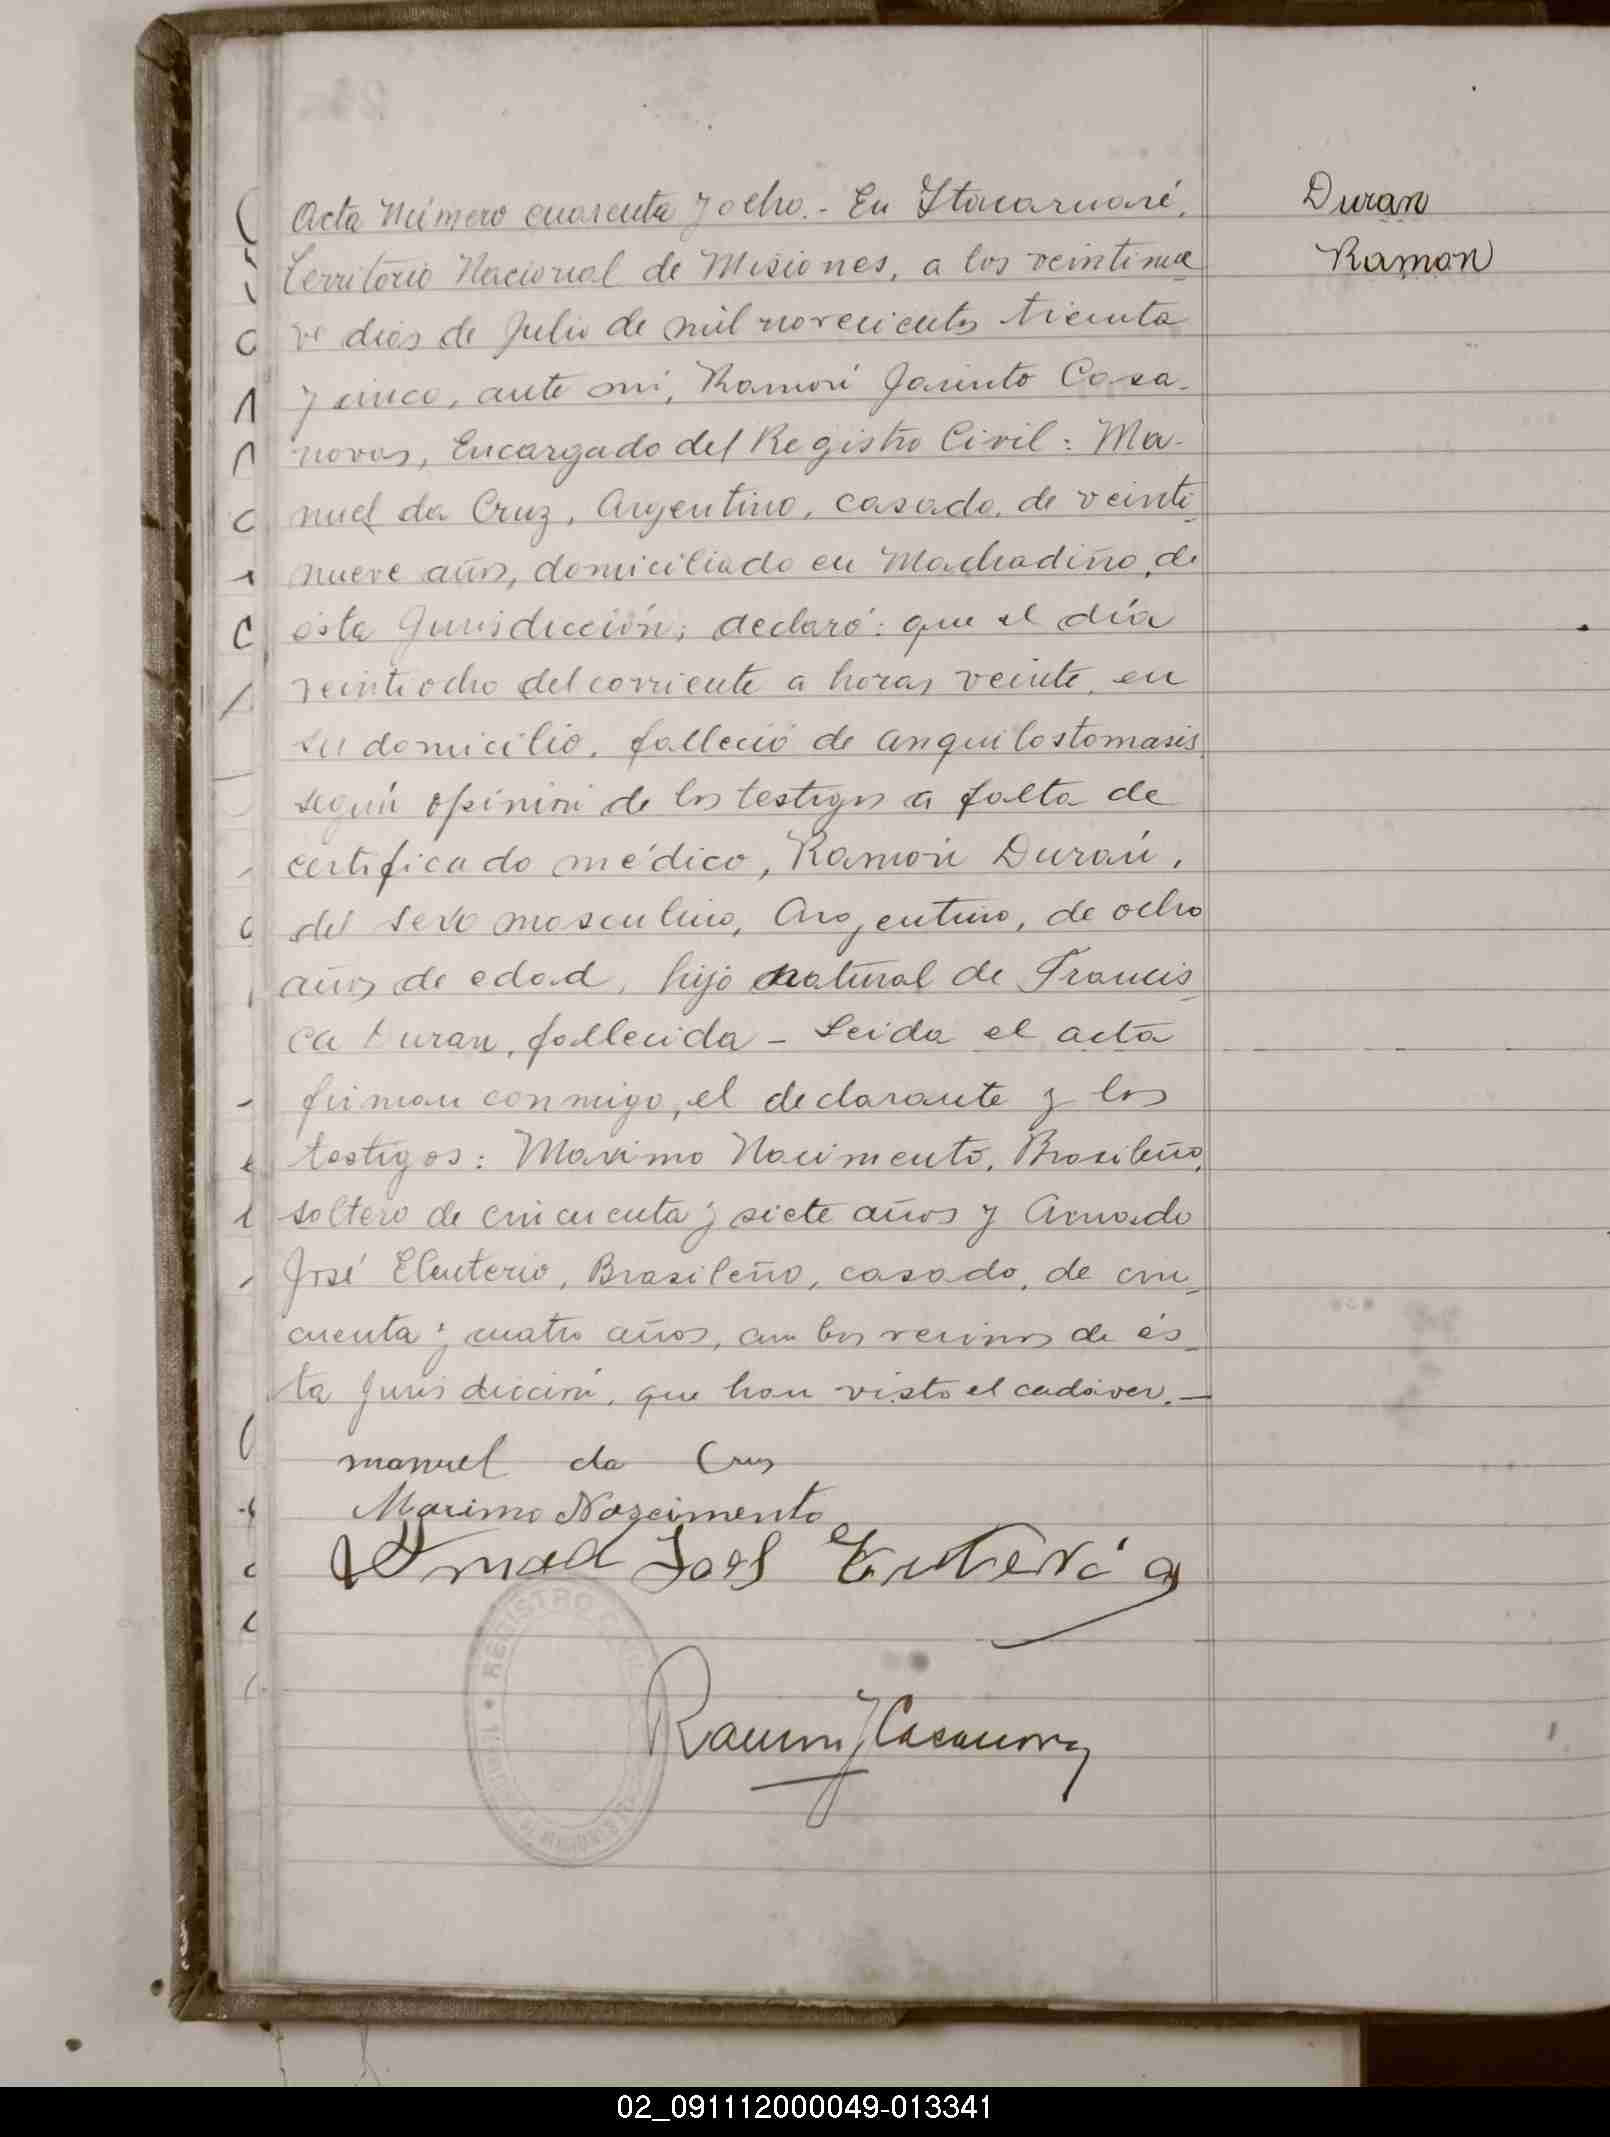 Duran
Ramon
Acta Número cuarenta y ocho.- En Itacaruaré,
Territorio Nacional de Misiones, a los veintinue-
ve dias de Julio de mil novecientos treinta
y cinco, ante mí, Ramón Jacinto Casa-
novas, Encargado del Registro Civil: Ma-
nuel da Cruz, Argentino, casado, de veinti-
nueve años, domiciliado en Machadiño, de
ésta Jurisdicción; declaró: que el día
veintiocho del corriente a horas veinte, en
su domicilio, falleció de anquilostomasis
según opinión de los testigos a falta de
certificado médico, Ramón Durán,
del sexo masculino, Argentino, de ocho
años de edad, hijo natural de Francis-
ca Duran, fallecida - Leida el acta
firman conmigo, el declarante y los
testigos: Maximo Nacimento, Brasileño,
soltero de cincuenta y siete años y Amado
José Eleuterio, Brasileño, casado, de cin-
cuenta y cuatro años, ambos vecinos de és-
ta Jurisdicción, que han visto el cadáver.-
manuel da Cruz
Maximo Nascimento
Ramón J Casanova
REGISTRO
02_091112000049-013341